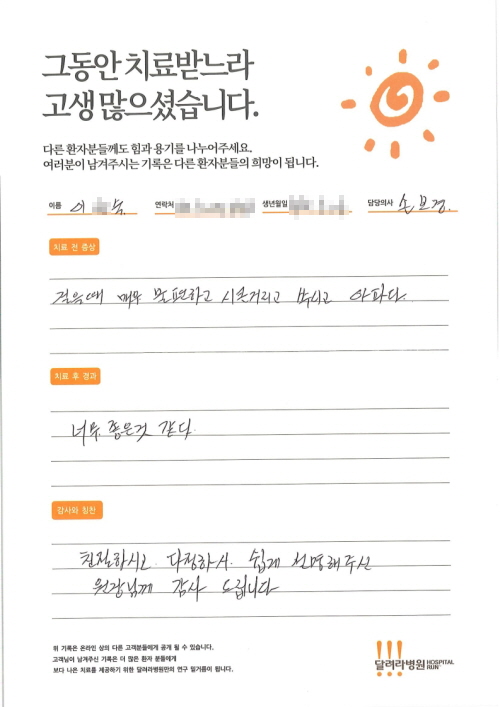 그동안 치료받느라
고생 많으셨습니다.
다른 환자분들께도 힘과 용기를 나누어주세요.
여러분이 남겨주시는 기록은 다른 환자분들의 희망이 됩니다.
이름 이 숙 연락처 생년월일 담당의사 손보경.
치료 전 증상
걸을때 매우 불편하고 시큰거리고 쑤시고 아파다.
치료 후 경과
너무 좋은것 같다.
감사와 칭찬
친절하시고 다정하시. 쉽게 설명해주신
원장님께 감사 드립니다
위 기록은 온라인 상의 다른 고객분들에게 공개 될 수 있습니다.
고객님이 남겨주신 기록은 더 많은 환자 분들에게
보다 나은 치료를 제공하기 위한 달려라병원만의 연구 밑거름이 됩니다.
달려라병원 HOSPITAL
RUN